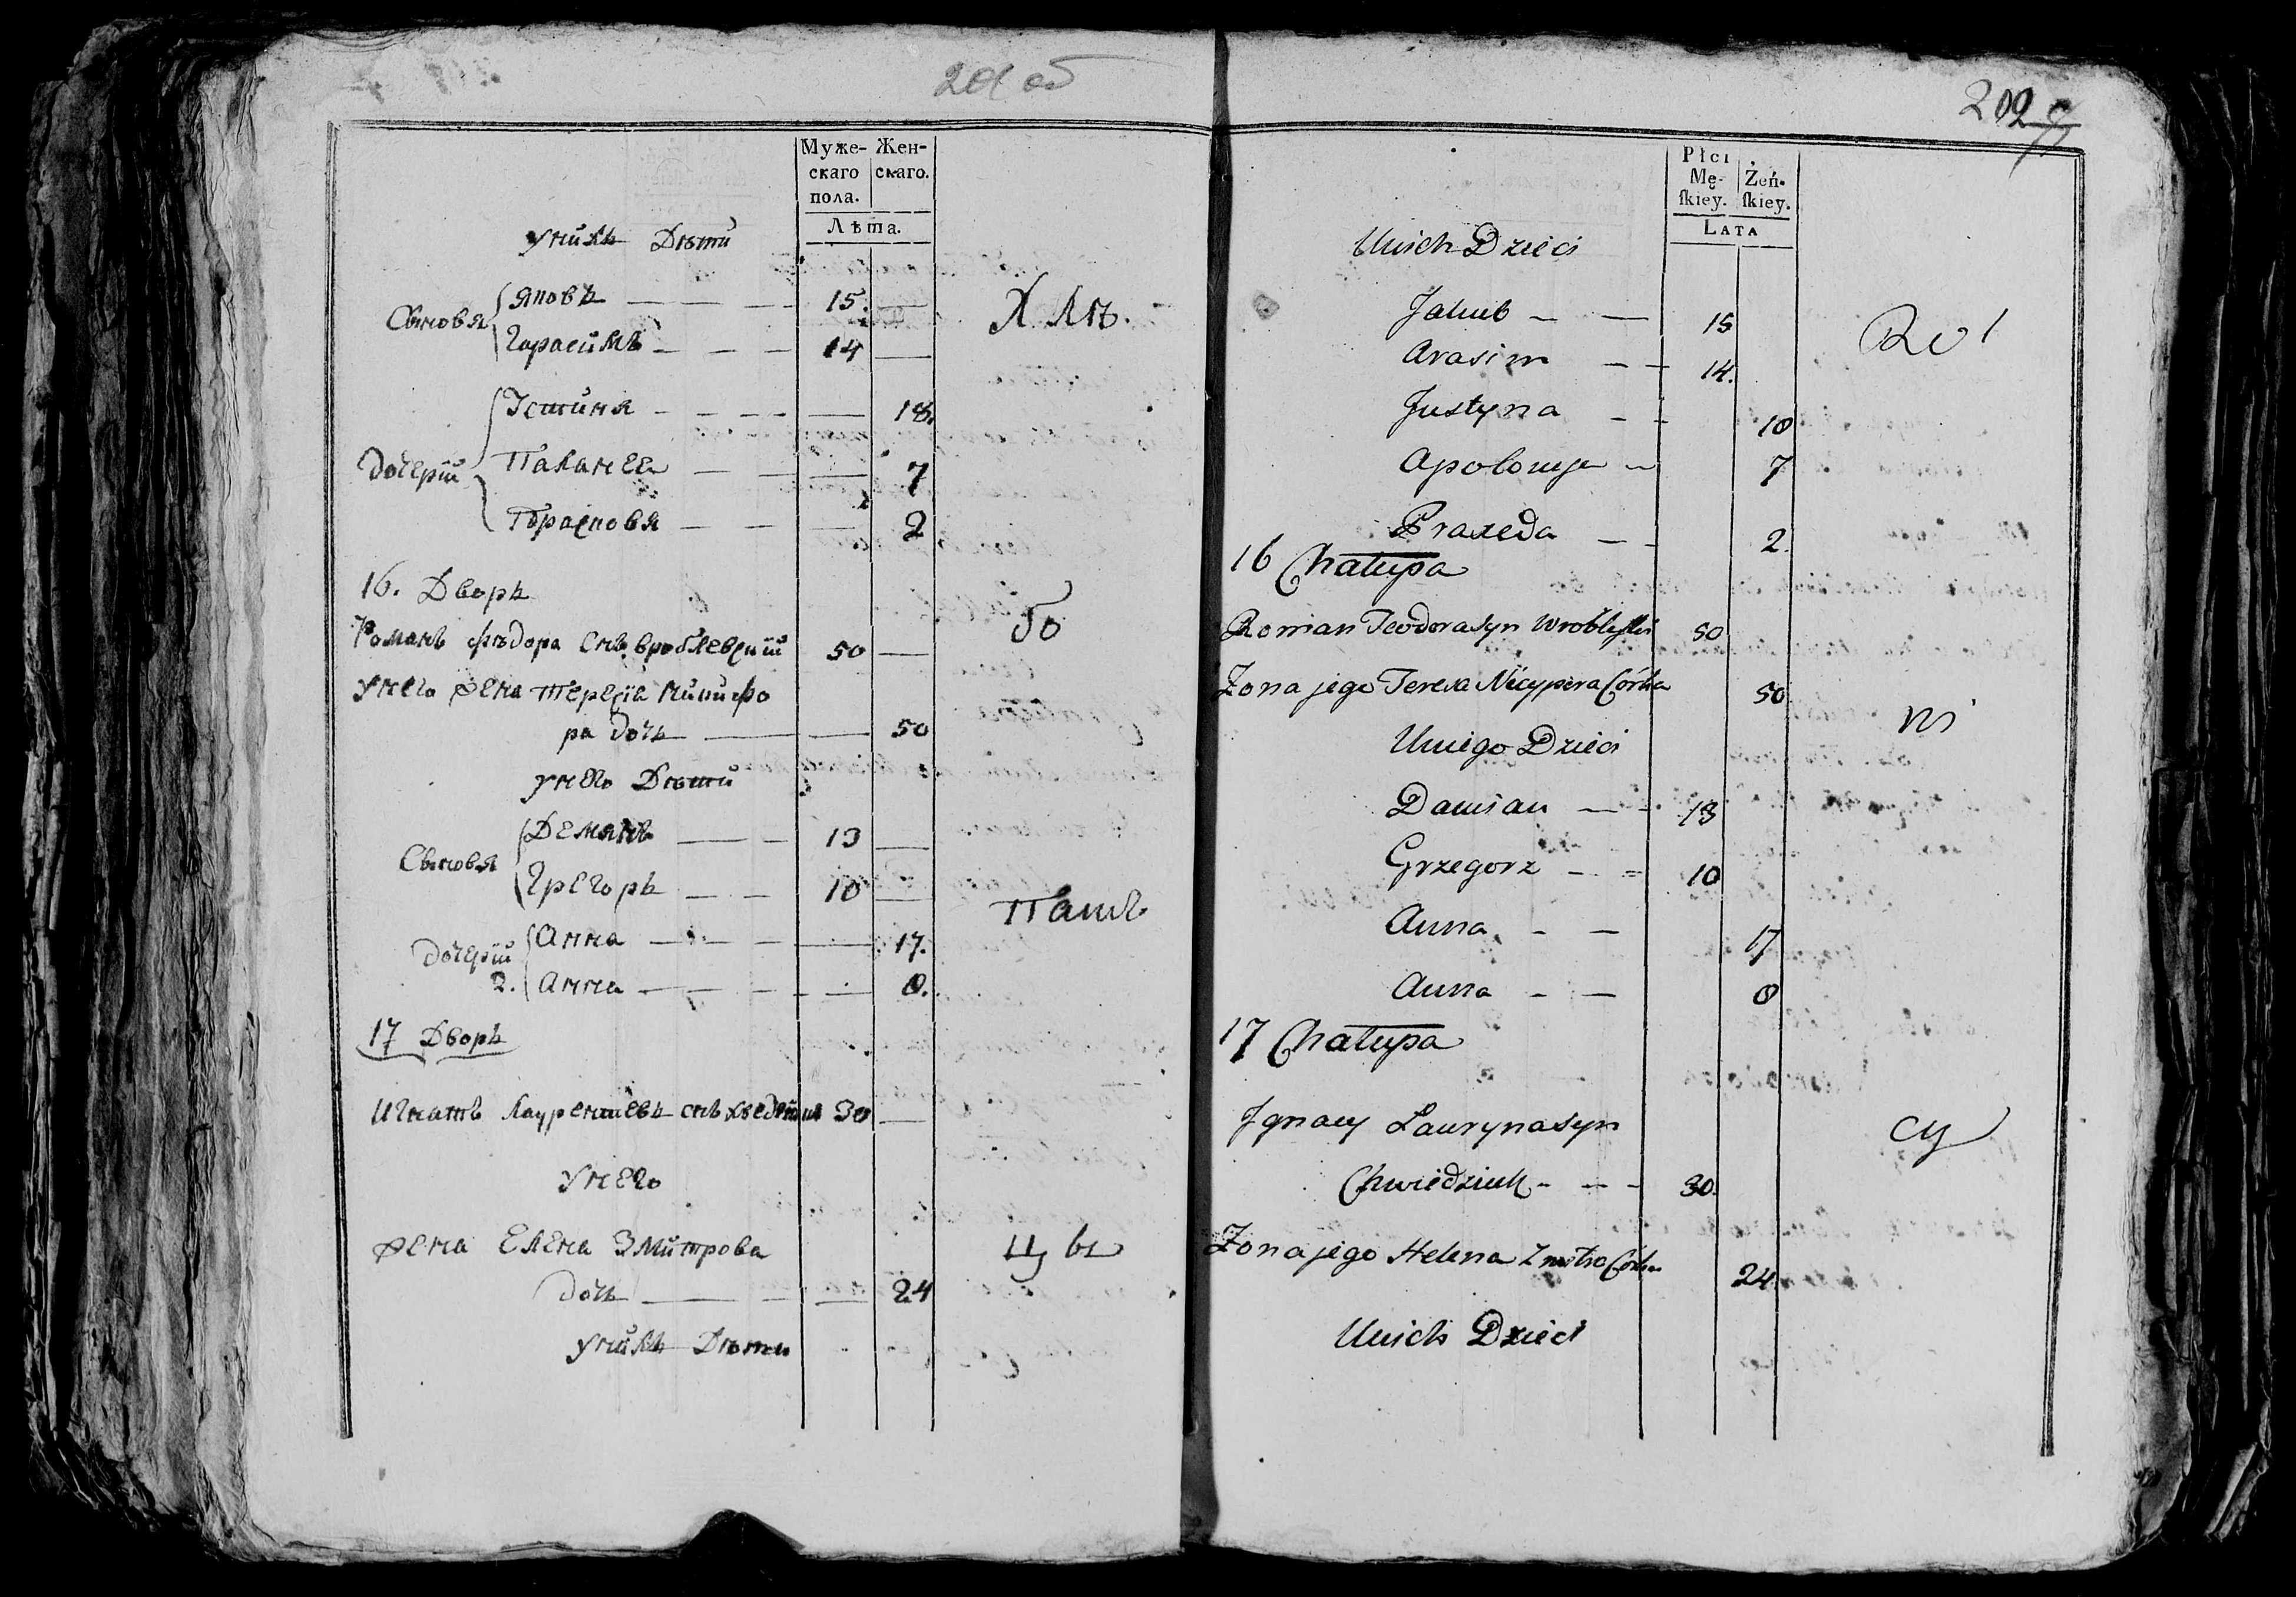 201 об
Муже-
скаго
пола.
Жен-
скаго.
Лѣта.
унихъ Дѣти
Сынов​я
Яковъ — — — 15. —
Гарасимъ — — — 14 —
Дочерій
Істиня — — — — 18.
Паланея — — — 7
Порасковя — — — 2
Хлѣ.
16. Дворъ
Романъ Фѣдора снъ вроблевский 50 —
бо
унего жена Тересія Ничифо
ра дочь — — 50
унего Дѣти
Сыновя
Демянъ — — 13 —
Грегоръ — — 10 —
Дочерій
Анна — — — — 17.
2. Анна — — — — 8.
Паше
17 Дворъ
Игнатъ Лаурентиевъ снъ хведюкъ 30 —
унего
жена Елена Змитрова
дочь — — — 24
цы
унихъ Дѣти
202
Płci
Mę-
ſkiey.
Żeń-
ſkiey.
LATA
Unich Dzieci
Jakub — — 15
Rol
Arasim — — 14.
Justyna — — 18
Apolonija — 7
Praxeda — — 2.
16 Chałupa
Roman Teodora syn Wroblewski 50
Zona jego Teresa Nicypera Córka 50
ni
Uniego Dzieci
Damian — — 13
Grzegorz — = 10
Anna — — 17
Anna — — 8
17 Chałupa
Ignacy Lauryna syn
cy
Chwiedziuk — — — 30.
Zona jego Helena Zmitra Córka 24
Unich Dzieci